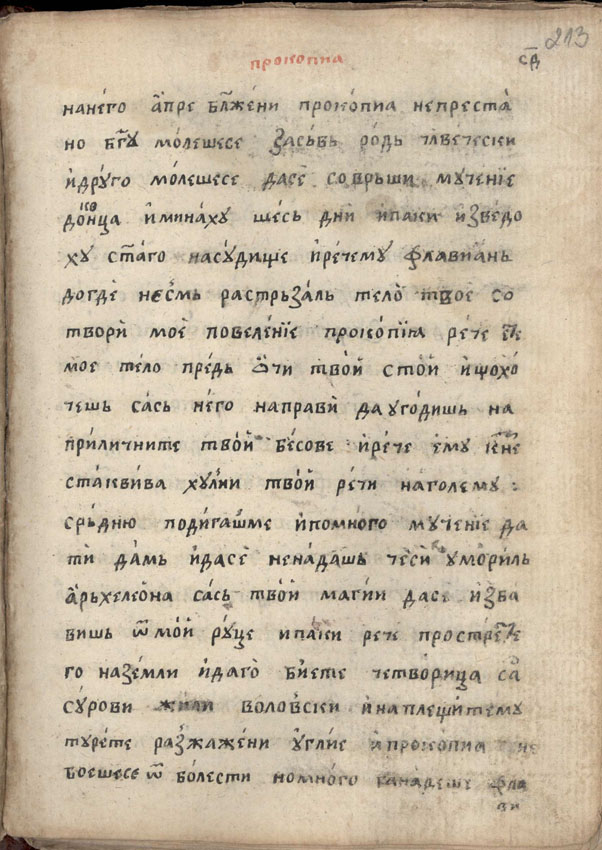 прокопиа
213
сд҃
нанéго а҆пре бл҃же́ни прокопиа непреста̀
но бг҃у мо́лешесе засъвь ро́дь чл҃вечески
и҆дру́го мо́лешесе дасѐ совръши мꙋчениѐ
доконца и҆минáхꙋ шесь днѝ и҆паки и҆зведо
хꙋ ст҃аго насꙋ́дище и҆рѐчемꙋ флавиа́нь
догдѐ не́смь растръза́ль тело̀ твое со
творѝ моѐ повеле́ниѐ прокопїа рѐче
мое тело пре́дь ѻ҆чи твоѝ стоѝ и҆щохо́
чешь сась не́го направѝ да угодишь на
при́личните твоѝ бе́сове и҆ре́че ему
ста́квива хул́ни твоѝ ре́чи наголему
сръ́дню подигашме и҆помно́го мꙋче́ние да
ти да́мь и҆дасѐ ненáдашь чеси умори́ль
а҆рьхелео́на сась твоѝ маги́и дасе и҆зба
вишь ѿ мо́й рꙋце ипаки рече простре́те
го назе́мли и҆даго̀ би́ете четвори́ца са
сꙋ́рови жили воло́вски и҆наплещи́темꙋ
тꙋре́те разжаже́ни ꙋ҆́глие а҆прокопиа не
боешесе ѿ бо́лести номно́го канáдеше фла
ви